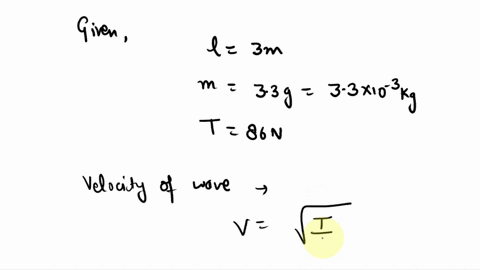 Given,
l = 3m
m = 3.3g = 3.3×10⁻³ Kg
T = 86N
Velocity of wave →
V = √T